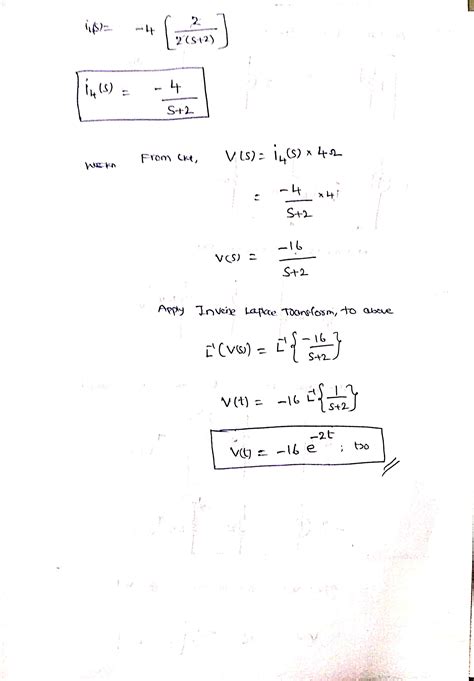 i₄(s) = -4 [ 2 / 2(s+2) ]
i₄(s) = -4 / s+2
From Ckt, V(s) = i₄(s) × 4Ω
= -4 / s+2 × 4
V(s) = -16 / s+2
Apply Inverse Laplace Transform, to above
L⁻¹(V(s)) = L⁻¹{ -16 / s+2 }
V(t) = -16 L⁻¹{ 1 / s+2 }
V(t) = -16 e^-2t ; t>0